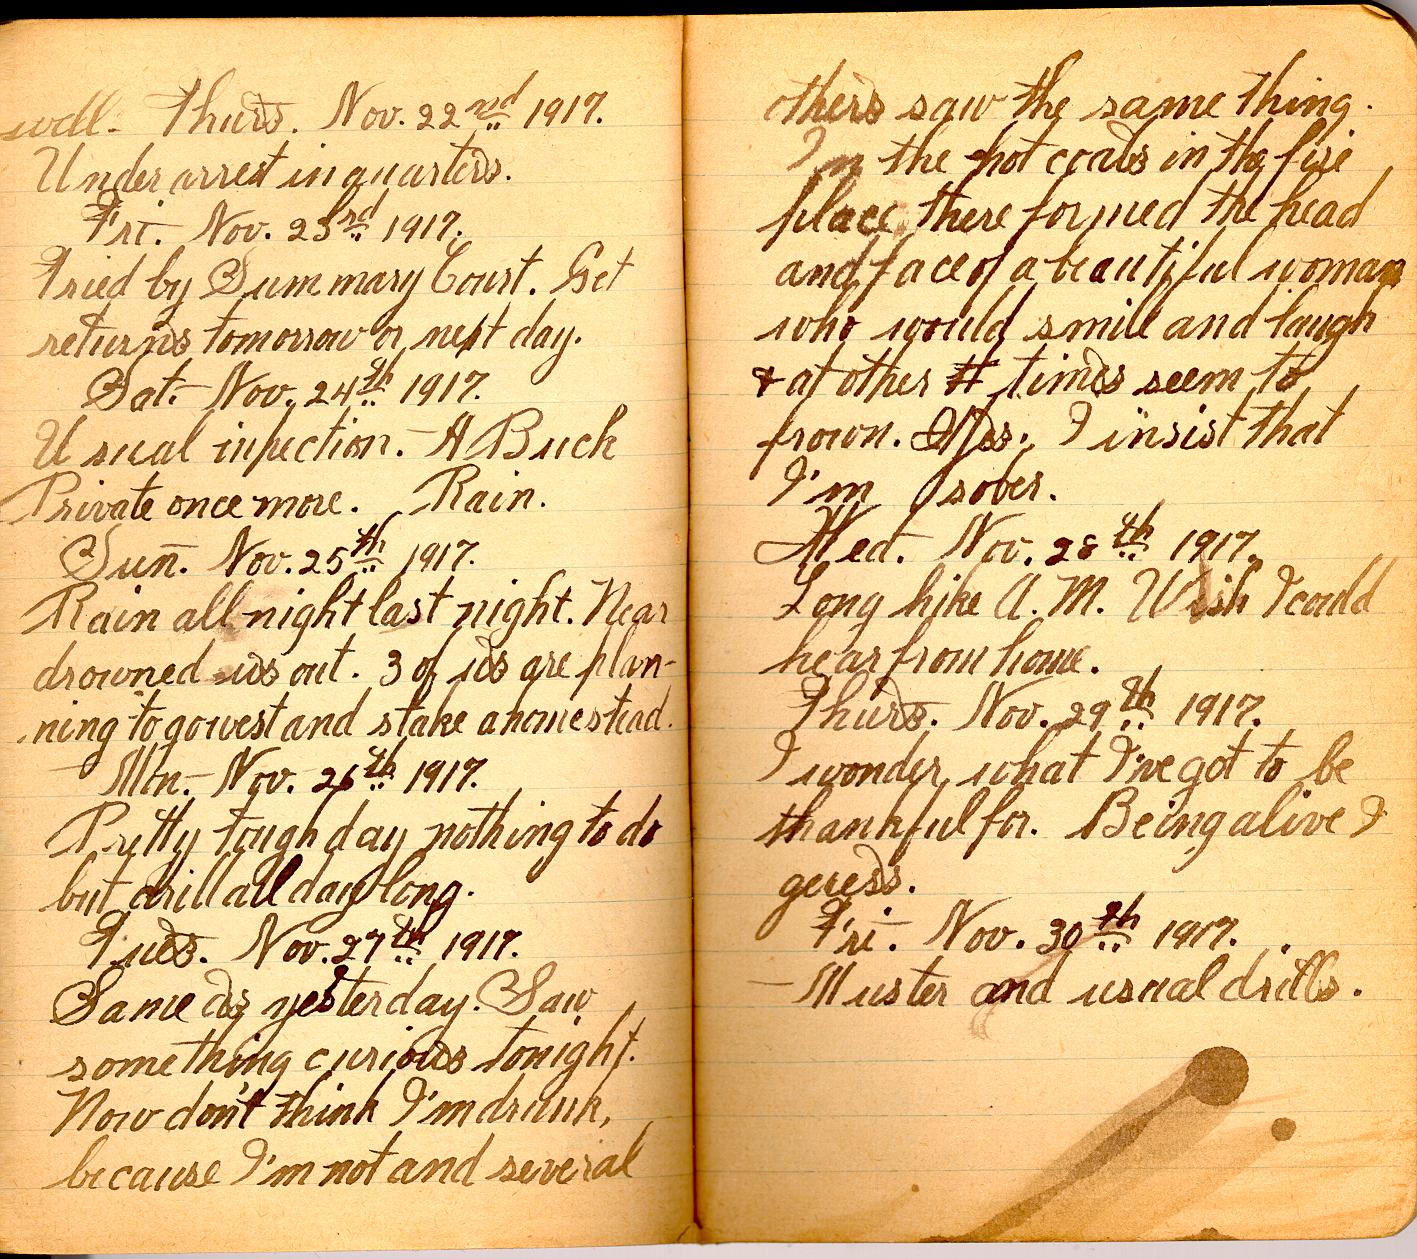 well. Thurs. Nov. 22nd 1917.
Under arrest in quarters.
Fri. Nov. 23rd 1917.
Tried by Summary Court. Get
returns tomorrow or next day.
Sat. - Nov. 24th 1917.
Usual inpection. - A Buck
Private once more. Rain.
Sun. Nov. 25th 1917.
Rain all night last night. Near
drowned us out. 3 of us are plan-
ning to go west and stake a homestead.
Mon. - Nov. 26th 1917.
Pretty tough day nothing to do
but drill all day long.
Tues. Nov. 27th 1917.
Same as yesterday. Saw
something curious tonight.
Now don't think I'm drunk,
because I'm not and several
others saw the same thing.
In the hot coals in the fire
place there formed the head
and face of a beautiful woman
who would smile and laugh
& at other times seem to
frown. Yes, I insist that
I'm sober.
Wed. - Nov. 28th 1917.
Long hike A. M. Wish I could
hear from home.
Thurs. Nov. 29th 1917.
I wonder what I've got to be
thankful for. Being alive I
geress.
Fri. - Nov. 30th 1917.
- Muster and usual drills.